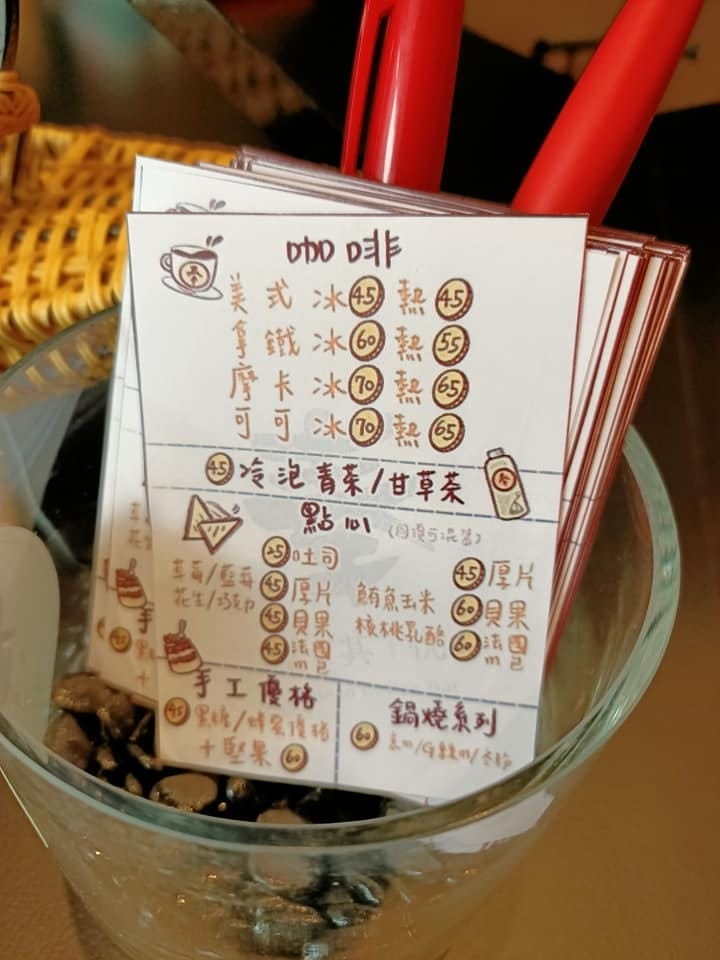 咖啡
美式 冰45 熱45
拿鐵 冰60 熱55
摩卡 冰70 熱65
可可 冰70 熱65
45 冷泡青茶/甘草茶
點心
25 吐司
草莓/藍莓
花生/巧克力
45 厚片
45 貝果
45 法國
鮪魚玉米
核桃乳酪
45 厚片
60 貝果
60 法國
手工優格
45 黑糖/蜂蜜優格
+堅果 60
鍋燒系列
60